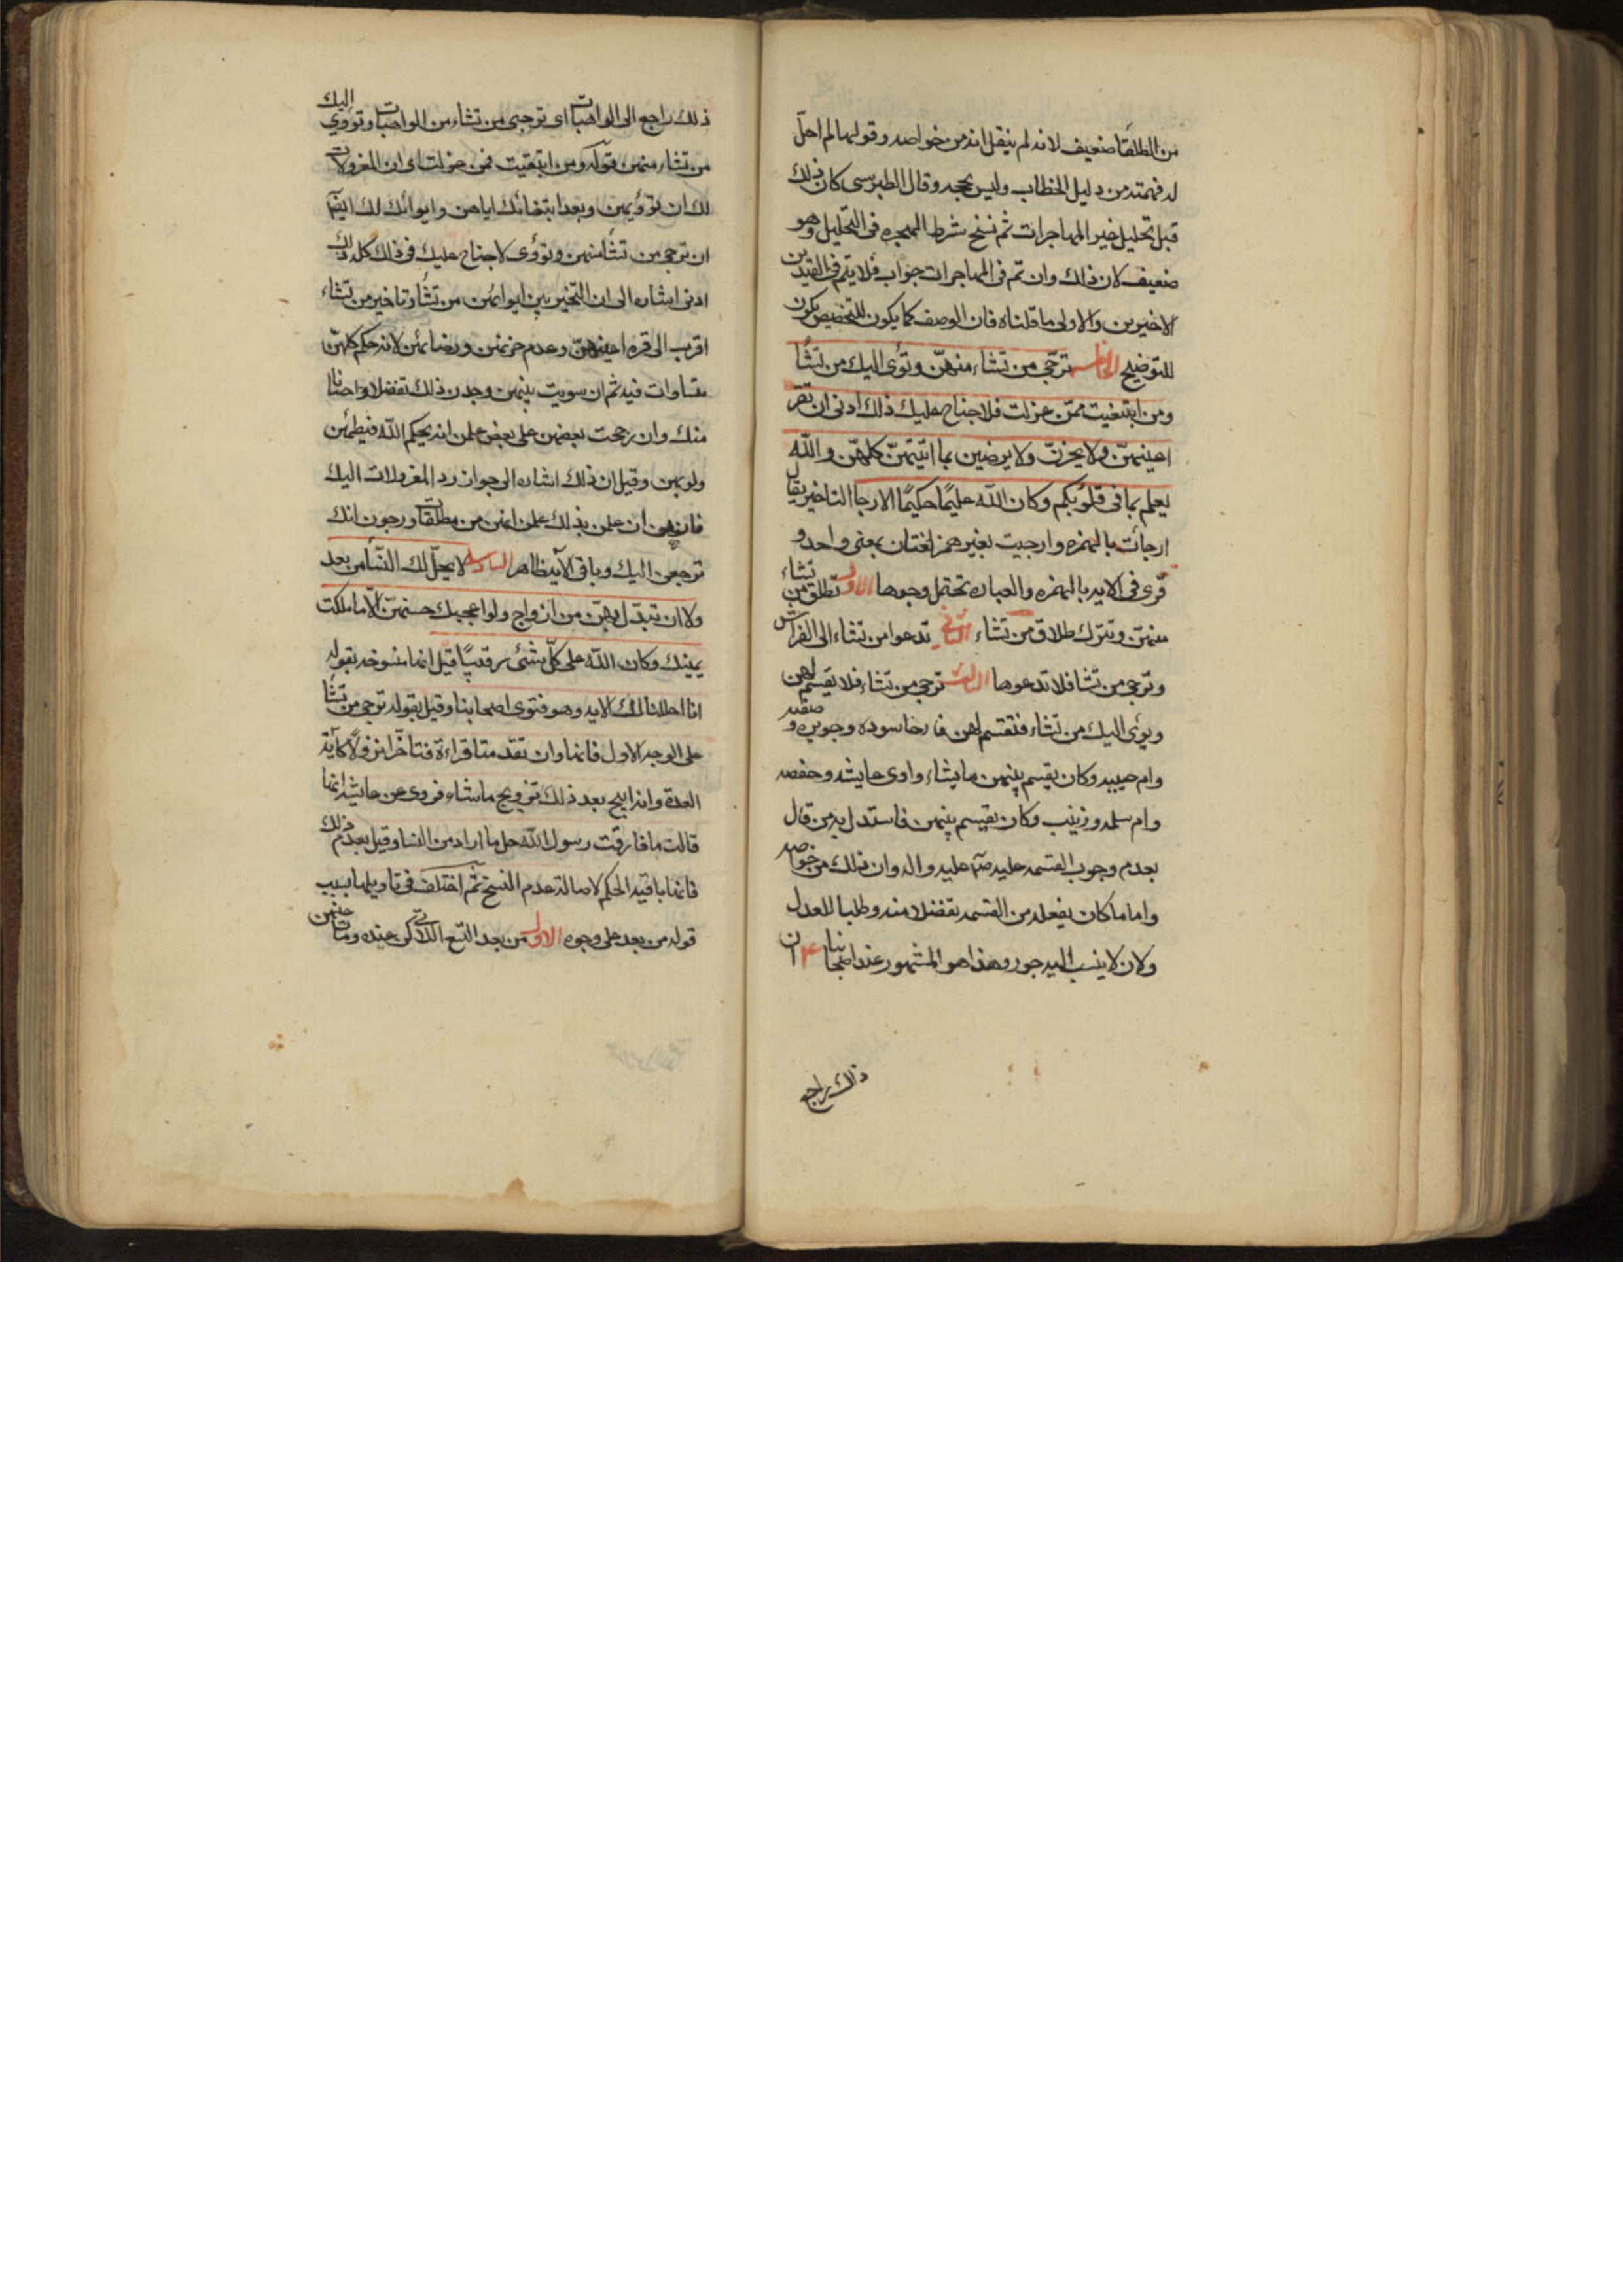 من الطلقا ضعيف لانه لم ينقل انه من خواصه وقولها لم احلّ
له فهمته من دليل الخطاب وليس بحجه وقال الطبرسى كان ذلك
قبل تحليل غير المهاجرات ثم نسخ شرط الهجره فى التحليل وهو
ضعيف لان ذلك وان تم فى المهاجرات جواب فلا يتم فى القيدين
الاخيرين والاولى ما قلناه فان الوصف كما يكون للتخصيص يكون
للتوضيح الخامسه ترجى من تشاء منهنّ وتؤى اليك من تشا
ومن ابتغيت ممّن عزلت فلا جناح عليك ذلك ادنى ان تقر
اعينهنّ ولا يحزنّ ولا يرضين بما اتيتهنّ كلهنّ والله
يعلم بما فى قلوبكم وكان الله عليمًا حكيمًا الارجا التاخير يقال
ارجأت بالهمزه وارجيت بغير همز لغتان بمعنى واحد و
قرئ فى الايه بالهمزه والعباره تحتمل وجوها الاول تطلق من تشاء
منهنّ وتترك طلاق من تشاء الثانى تدعوا من تشاء الى الفراش
وترجى من تشا فلا تدعوها الثالث ترجى من تشاء فلا تقسم لهن
ويؤى اليك من تشاء فتقسم لهن فارخا سوده وجويره و صفيه
وام حبيبه وكان يقسم بينهن ما يشاء واوى عايشه وحفصه
وام سلمه وزينب وكان يقسم بينهن فاستدل به من قال
بعدم وجوب القسمه عليه صلى عليه واله وان ذلك من خواصه
واما ما كان يفعله من القسمه تفضلا منه وطلبا للعدل
ولان لا ينسب اليه جور وهذا هو المشهور عند اصحابنا ۴ ان
ذلك راجع
ذلك راجع الى الواهبات اى ترجئ من تشاء من الواهبات وتؤوي اليك
من تشاء منهن قوله ومن ابتغيت ممن عزلت اى ان المعزولات
لك ان تؤويهن وبعد ابتغائك اياهن وايوائك لك ايضا
ان ترجى من تشا منهن وتؤى لا جناح عليك فى ذلك كله ذلك
ادنى اشاره الى ان التخير بين ايوائهن من تشا وتاخير من تشاء
اقرب الى قره اعينهنّ وعدم حزنهن ورضائهن لانه حكم كلهنّ
متساوات فيه ثم ان سويت بينهن وجدن ذلك تفضلا واحسانا
منك وان رجحت بعضهن على بعض علمن انه بحكم الله فيطمئن
ولوبهن وقيل ان ذلك اشاره الى جواز رد المعزولات اليك
فانهن ان علمن بذلك علمن انهن من مطلقات ورجون انك
ترجعن اليك وباقى الاية ظاهر السادسه لا يحلّ لك النساء من بعد
ولا ان تبدّل بهنّ من ازواج ولو اعجبك حسنهنّ الّا ما ملكت
يمينك وكان الله على كلّ شئ رقيبًا قيل انها منسوخه بقوله
انا احللنا لك الايه وهو فتوى اصحابنا وقيل بقوله ترجى من تشا
على الوجه الاول فانها وان تقدمتا قراءة فتاخرا نزولًا كاية
العدة وانه ابيح بعد ذلك تزويج ما شاء فروى عن عايشه انها
قالت ما فارقت رسول الله حل ما اراد من النسا وقيل بعدم ذلك
فانها باقية الحكم لاصالة عدم النسخ ثم اختلف فى تاويلها بسبب
قوله من بعد على وجوه الاول من بعد التسع اللاتى كن عنده ومات عنهن